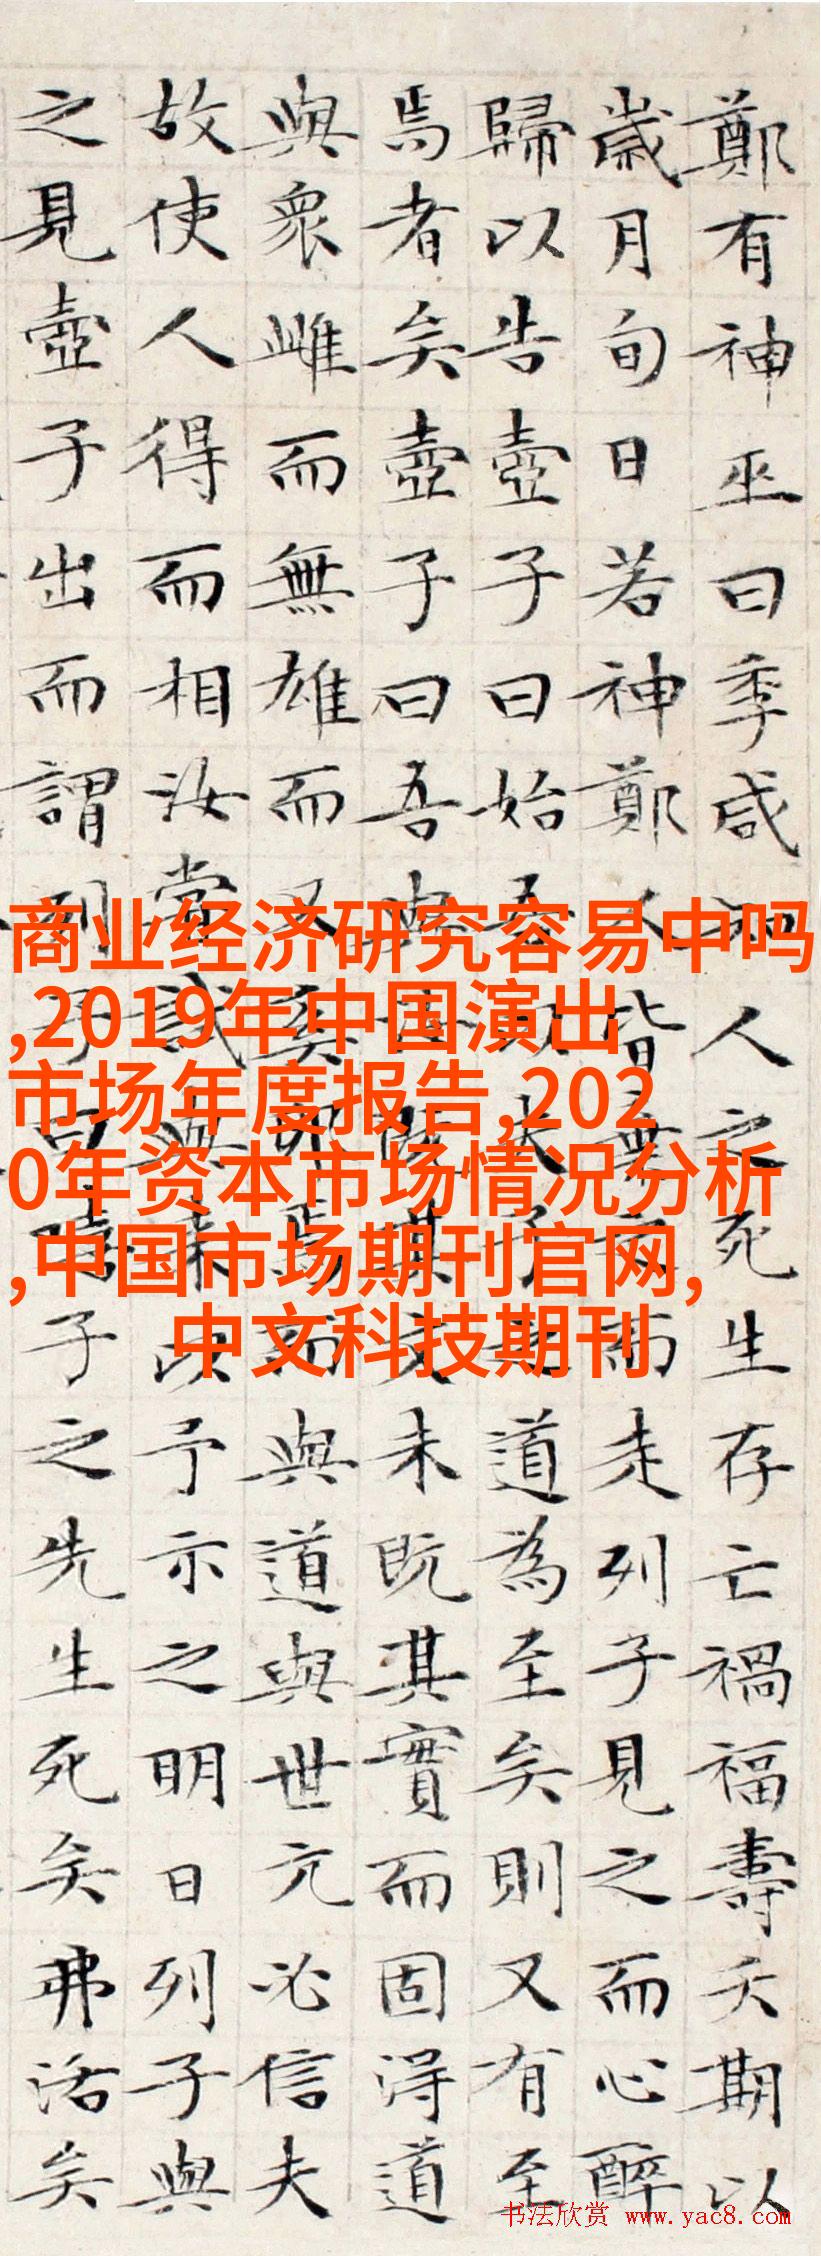 鄭有神巫曰季咸知人之死生存亡禍福壽夭期以
歲月旬日若神鄭人皆而走列子見之而心醉
歸以告壺子曰始吾以夫子之道為至矣則又有至
焉者矣壺子曰吾與汝既其文未既其實而固得道
與衆雌而無雄而又奚卵焉而與道與世亢必信夫
故使人得而相汝嘗試與來以予示之明日列子與
之見壺子出而謂列子曰嘻子之先生死矣弗活矣
商业经济研究容易中吗
,2019年中国演出
市场年度报告,202
0年资本市场情况分析
,中国市场期刊官网,
中文科技期刊
书法欣赏 www.yac8.com